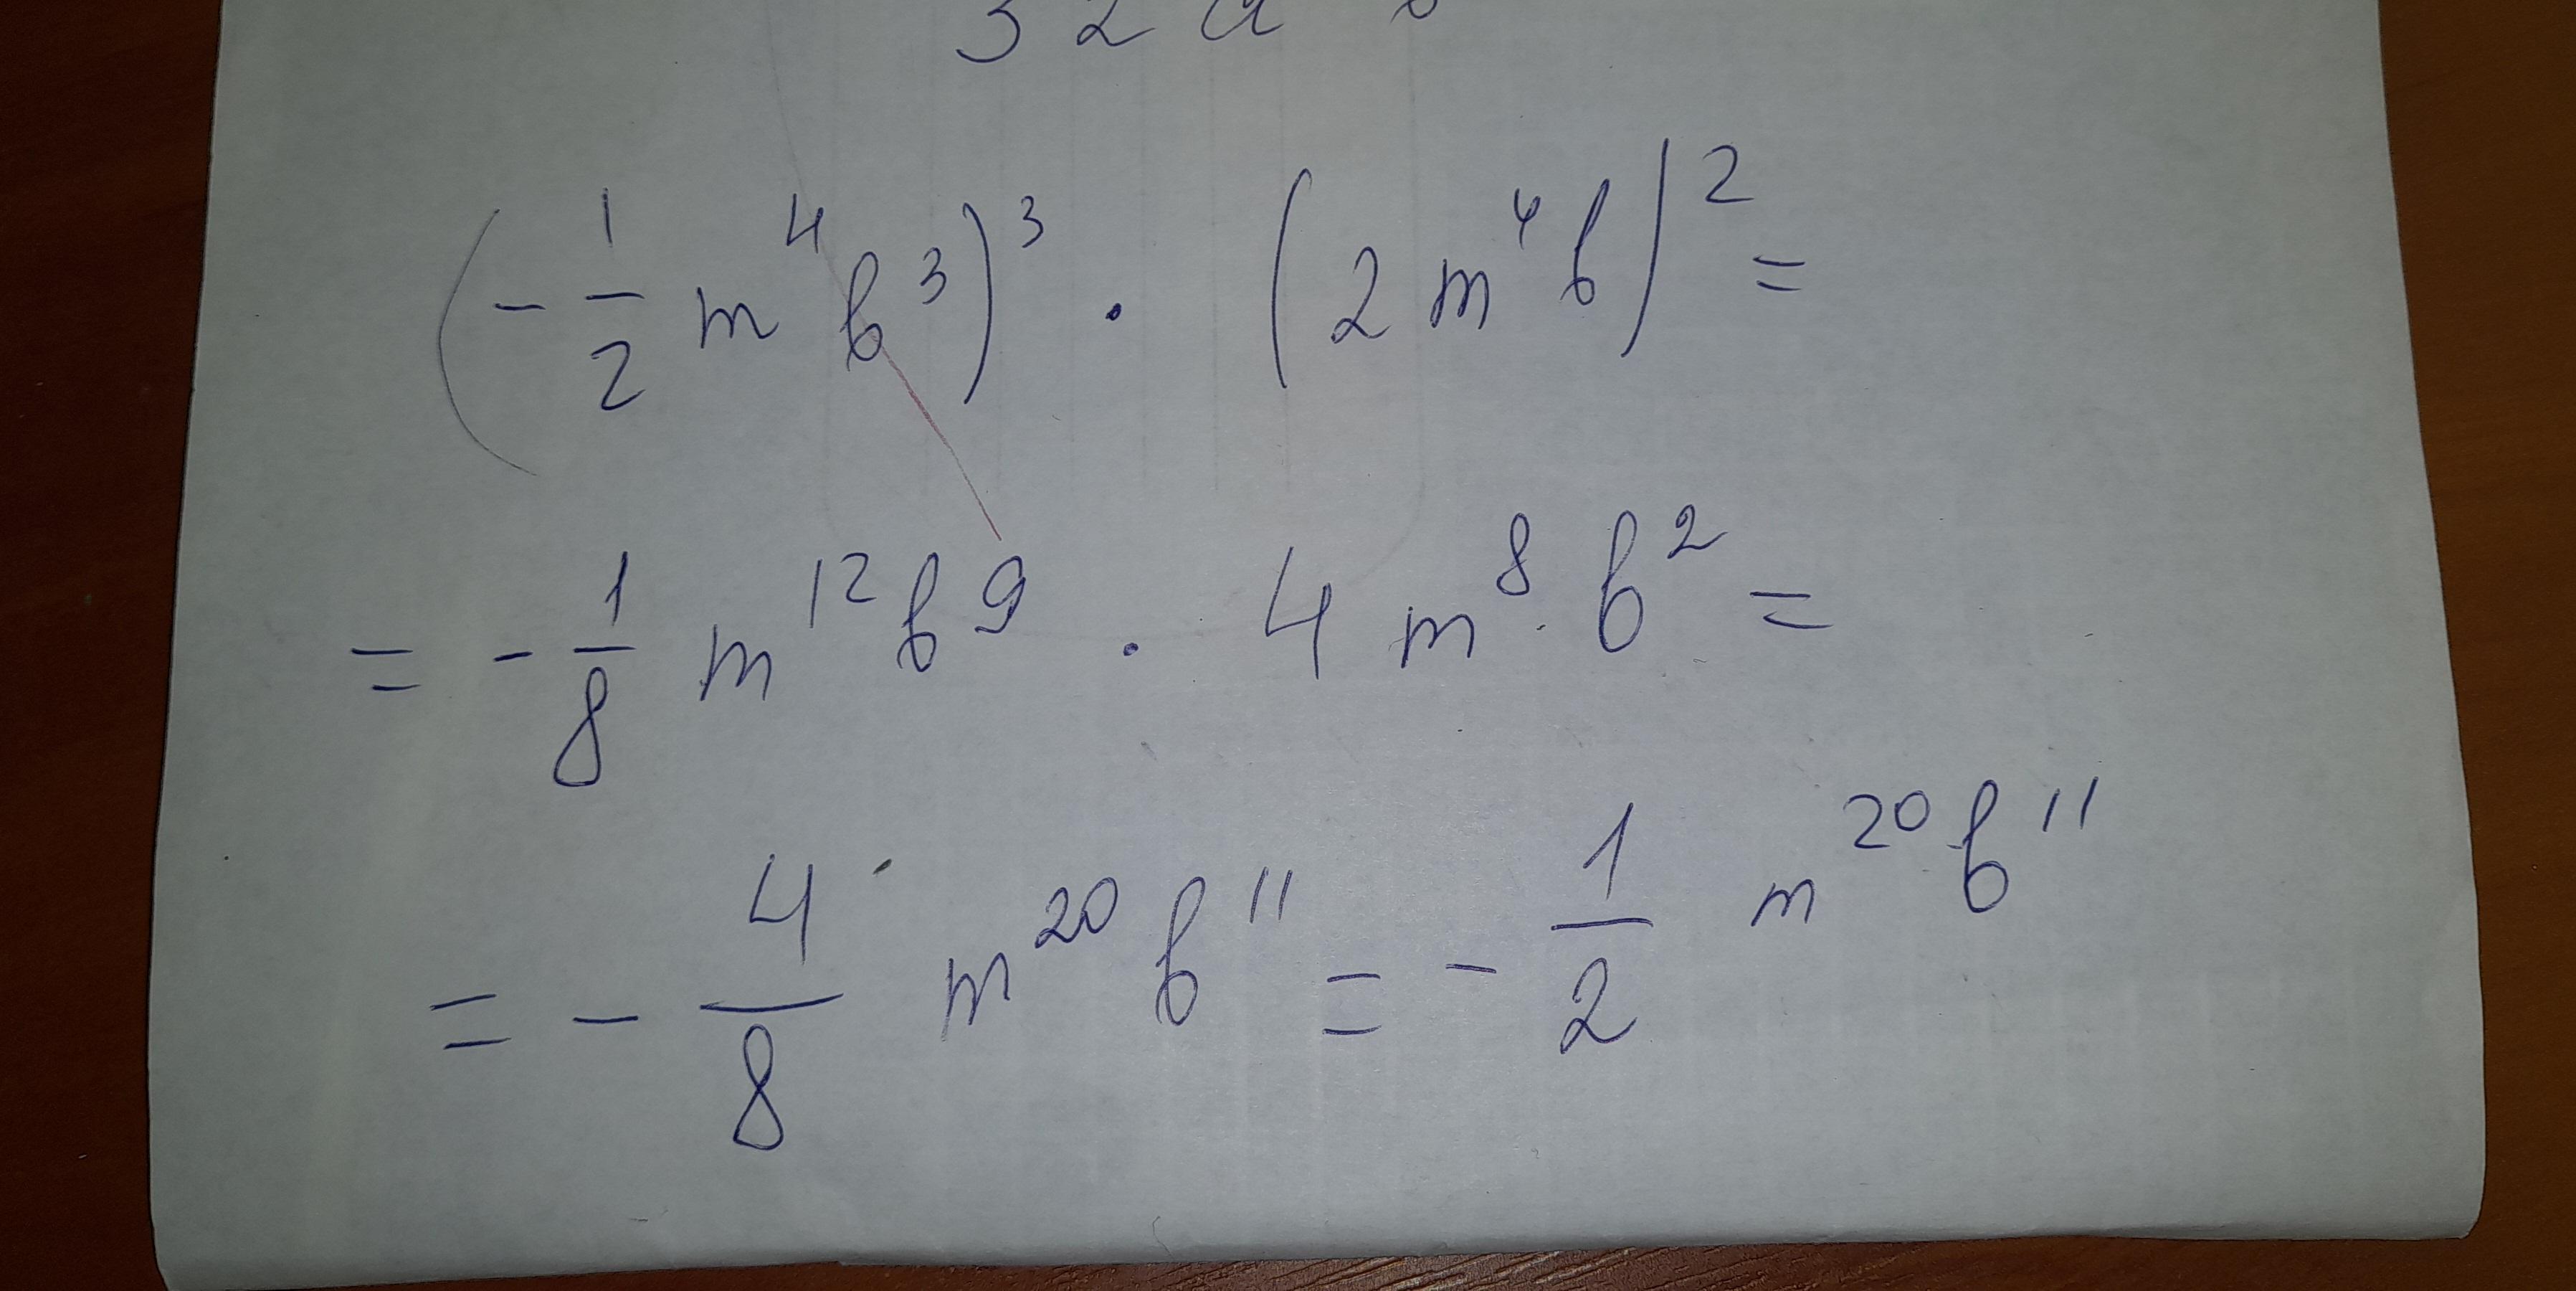 32a
(-1/2 m⁴b³)³ · (2m⁴b)² =
= -1/8 m¹²b⁹ · 4m⁸·b² =
= -4/8 m²⁰b¹¹ = -1/2 m²⁰b¹¹